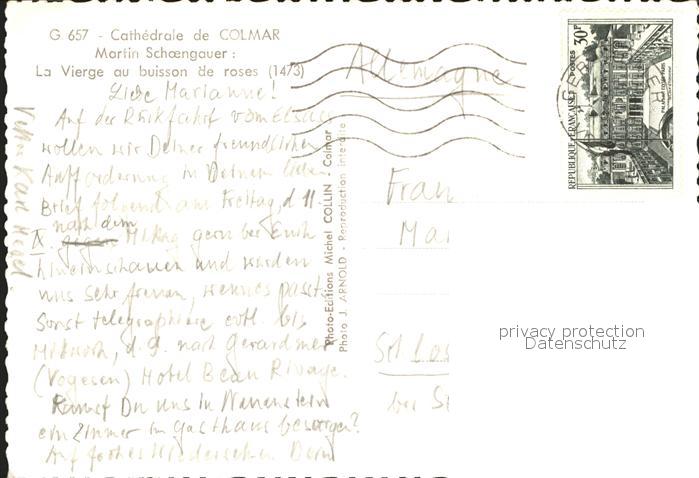 G 657 - Cathédrale de COLMAR
Martin Schœngauer :
La Vierge au buisson de roses (1473)
Liebe Marianne!
Auf der Rückfahrt vom Elsass
wollen wir Deiner freundlichen
Aufforderung in Deinem lieben
Brief folgend am Freitag, d 11.
nach dem
IX. gegen Mittag gern bei Euch
hineinschauen und würden
uns sehr freuen, wenn es passt.
Sonst telegraphiere evtl. bis
Mittwoch, d. 9. nach Gerardmer
(Vogesen) Hotel Beau Rivage.
Kannst Du uns in
ein Zimmer im Gasthaus besorgen?
Auf frohes Wiedersehen Dein
Vetter Karl
Photo-Editions Michel COLLIN Colmar
Photo J. ARNOLD - Reproduction interdite
Allemagne
Frau
Ma
bei S
30F
REPUBLIQUE FRANÇAISE
POSTES
privacy protection
Datenschutz